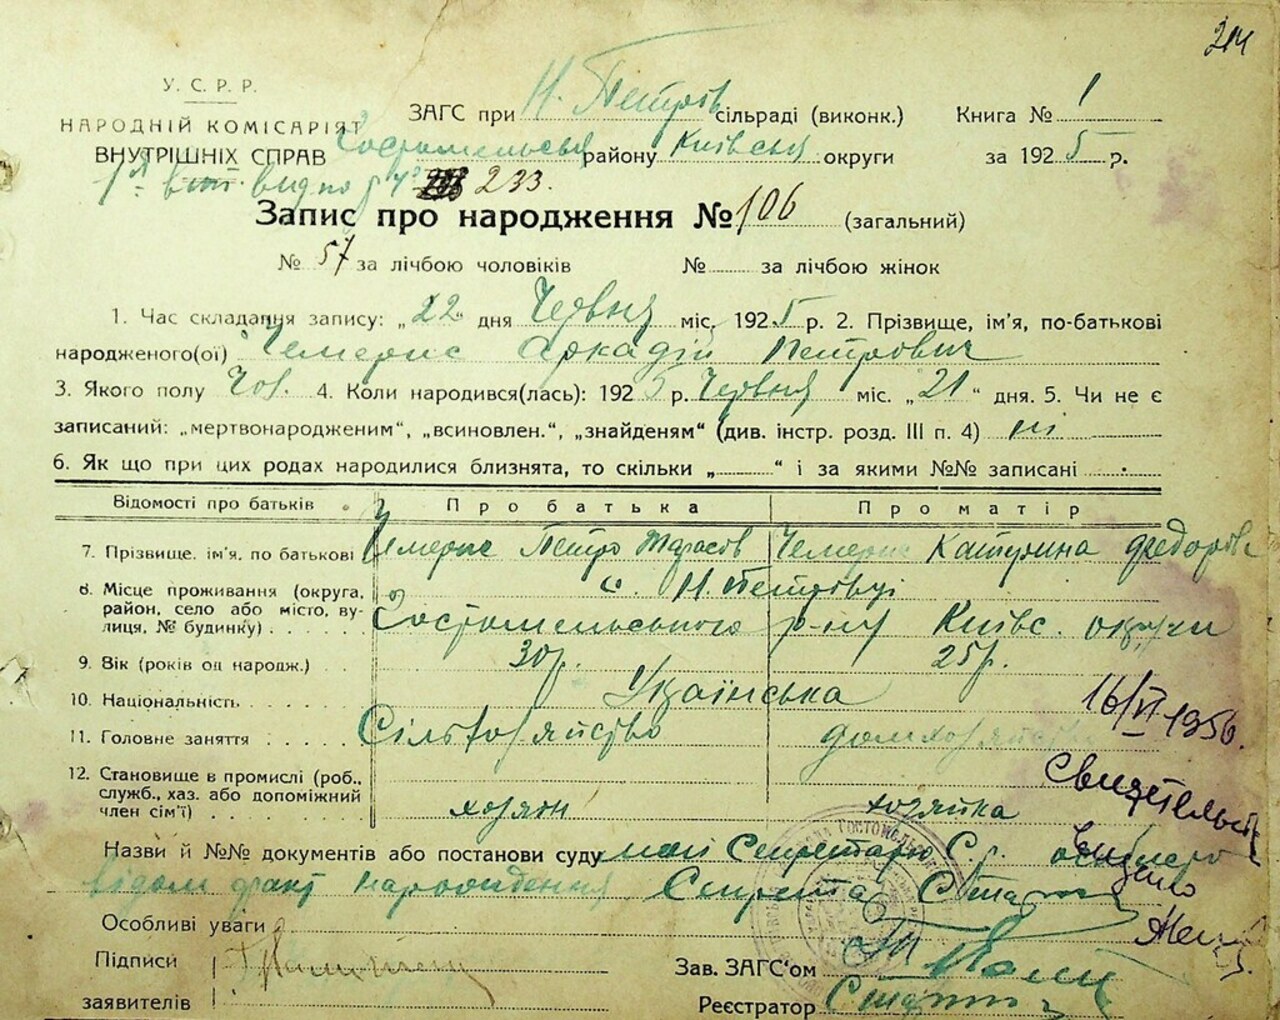 204
У. С. Р. Р.
НАРОДНІЙ КОМІСАРІЯТ
ВНУТРІШНІХ СПРАВ
ЗАГС при Н. Петрів сільраді (виконк.) Книга № 1
Гостомельськ району Київськ округи за 1925 р.
видно 233.
Запис про народження № 106 (загальний)
№ 57 за лічбою чоловіків № за лічбою жінок
1. Час складання запису: „22“ дня Червня міс. 1925 р. 2. Прізвище, ім’я, по-батькові
народженого(ої) Чемерис Аркадій Петрович
3. Якого полу Чол. 4. Коли народився(лась): 1925 р. Червня міс. „21“ дня. 5. Чи не є
записаний: „мертвонародженим“, „всиновлен.“, „знайденям“ (див. інстр. розд. III п. 4) ні
6. Як що при цих родах народилися близнята, то скільки „ “ і за якими №№ записані
Відомості про батьків Про батька Про матір
7. Прізвище. ім’я, по батькові Чемерис Петро Тарасов Чемерис Катерина Федоровн
8. Місце проживання (округа, с. Н. Петрівці
район, село або місто, ву- Гостомельського р-ну Київс. округи
лиця, № будинку)
9. Вік (років од народж.) 30 р. 25 р.
10. Національність Українська
16/VI 1956.
11. Головне заняття Сільхозяйство домхозяйство
12. Становище в промислі (роб.,
служб., хаз. або допоміжний
член сім’ї) хозяін хозяйка
Свидетельст
Назви й №№ документів або постанови суду Секретарю С. р. особисто
відом факт народження Секретар
Особливі уваги
Підписи
заявителів
Зав. ЗАГС’ом
Реєстратор